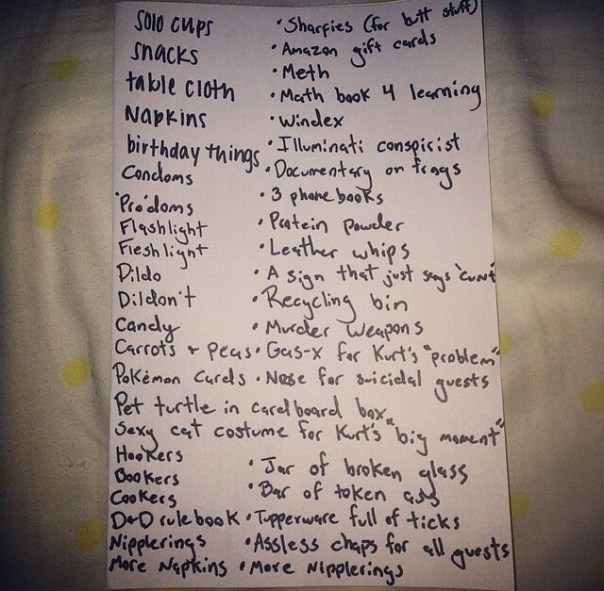 Solo cups
Snacks
table cloth
Napkins
birthday things
Condoms
Prodoms
Flashlight
Fleshlight
Dildo
Dildon't
Candy
Carrots + Peas
Pokémon Cards
Pet turtle in cardboard box
Sexy cat costume for Kurt's "big moment"
Hookers
Bookers
Cookers
D+D rule book
Nipplerings
More Napkins
• Sharpies (for butt stuff)
• Amazon gift cards
• Meth
• Math book 4 learning
• Windex
• Illuminati conspicist
• Documentary on frogs
• 3 phone books
• Protein Powder
• Leather whips
• A sign that just says "cunt"
• Recycling bin
• Murder Weapons
• Gas-X for Kurt's "problem"
• Nose for suicidal guests
• Jar of broken glass
• Bar of token
• Tupperware full of ticks
• Assless chaps for all guests
• More Nipplerings